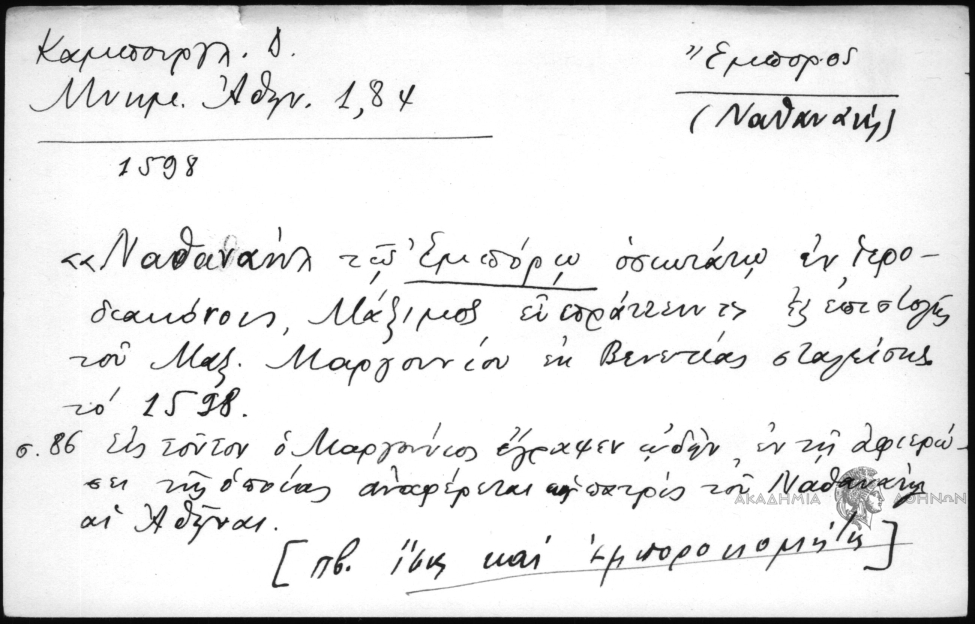 Καμπουργλ. Δ.
Μνημ. Ἀθην. 1,84
1598
Ἔμπορος
(Ναθαναήλ)
«Ναθαναὴλ τῷ Ἐμπόρῳ ὁσιωτάτῳ ἐν ἱερο-
διακόνοις, Μάξιμος εὖ πράττειν» ἐξ ἐπιστολῆς
τοῦ Μαξ. Μαργουνίου ἐκ Βενετίας σταλείσης
τό 1598.
σ. 86 Εἰς τοῦτον ὁ Μαργούνιος ἔγραψεν ᾠδὴν, ἐν τῇ ἀφιερώ-
σει τῆς ὁποίας ἀναφέρεται ὡς πατρὶς τοῦ Ναθαναὴλ
αἱ Ἀθῆναι.
[πβ. ἴσως καὶ ἐμποροκομήτης]
ΑΚΑΔΗΜΙΑ ΑΘΗΝΩΝ